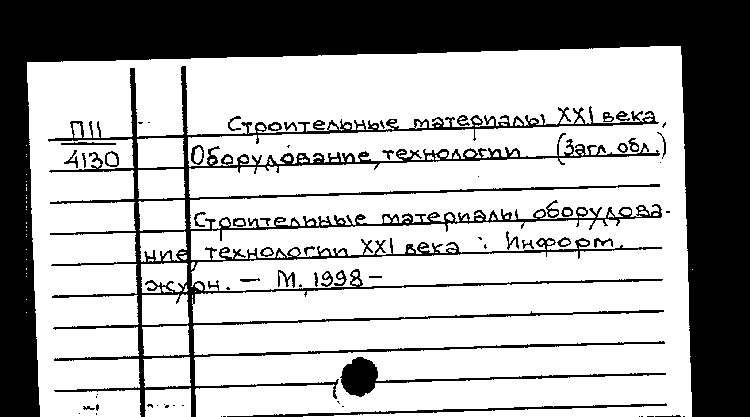 П11
4130
Строительные материалы XXI века.
Оборудование, технологии. (Загл. обл.)
Строительные материалы, оборудова-
ние, технологии XXI века : Информ.
журн. — М., 1998 –